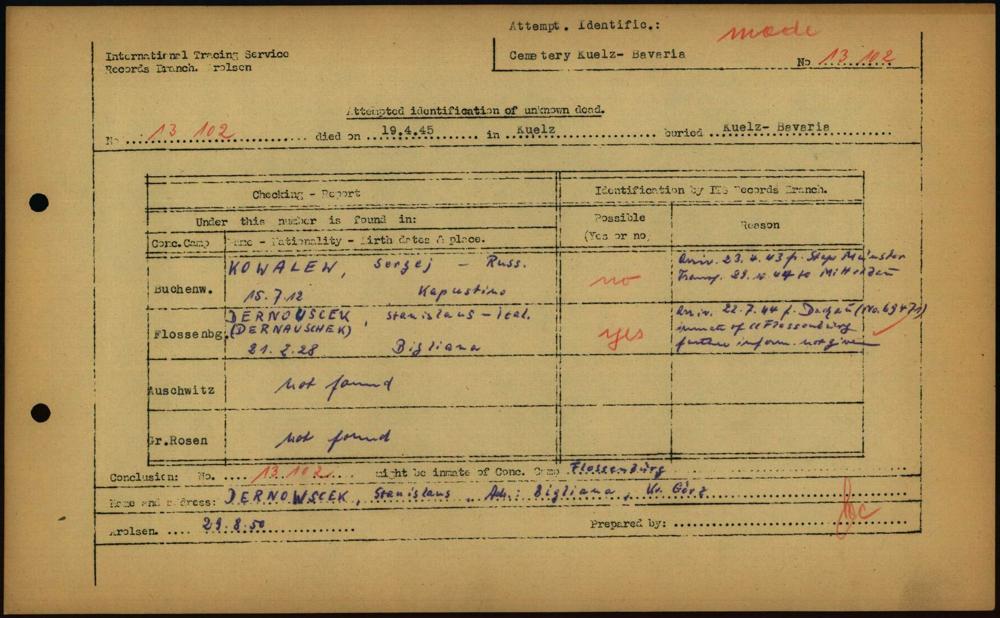 Attempt. Identific.: made
International Tracing Service
Records Branch. Arolsen
Cemetery Kuelz- Bavaria
No 13 102
Attempted identification of unknown dead.
No. 13 102 died on 19.4.45 in Kuelz buried Kuelz- Bavaria
Checking - Report
Identification by ITS Records Branch.
Under this number is found in:
Possible
(Yes or no
Reason
Conc.Camp
Name - Nationality - Birth dates & place.
Buchenw.
KOWALEW, Sergej - Russ.
15.7.12 Kapustino
no
Arriv. 23.4.43 fr. Stapo Münster
Transf. 29. 44 to Mittelbau
Flossenbg.
DERNOUSCEK, Stanislaus - ital.
(DERNAUSCHEK)
21.2.28 Bigliana
yes
Arriv. 22.7.44 f. Dachau (No. 69471)
inmate of CC Flossenbürg
further inform. not given
Auschwitz
not found
Gr.Rosen
not found
Conclusion: No. 13.102 might be inmate of Conc. Camp Flossenbürg
Name and address: DERNOWSCEK, Stanislaus, Adr.: Bigliana, Kr. Görz
Arolsen. 29.8.50 Prepared by: